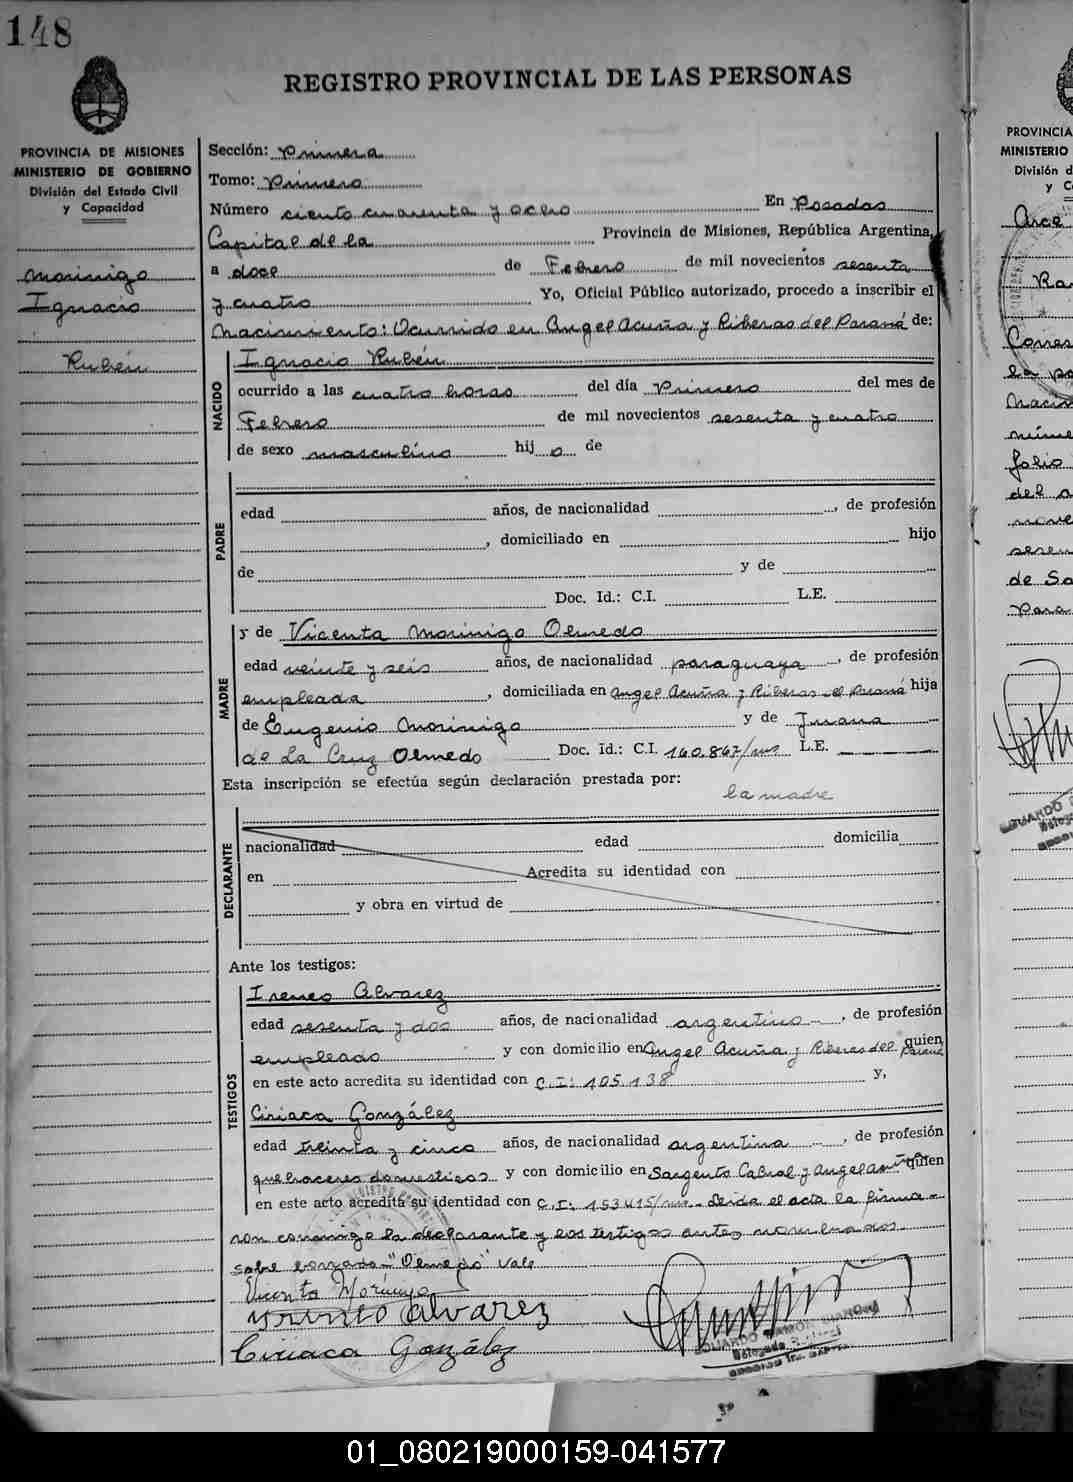 148
REGISTRO PROVINCIAL DE LAS PERSONAS
PROVINCIA DE MISIONES
MINISTERIO DE GOBIERNO
División del Estado Civil
y Capacidad
Morinigo
Ignacio
Rubén
Sección: Primera
Tomo: Primero
Número ciento cuarenta y ocho En Posadas
Capital de la Provincia de Misiones, República Argentina,
a doce de Febrero de mil novecientos sesenta
y cuatro Yo, Oficial Público autorizado, procedo a inscribir el
Nacimiento: Ocurrido en Angel Acuña y Riberas del Paraná de:
NACIDO
Ignacio Rubén
ocurrido a las cuatro horas del día Primero del mes de
Febrero de mil novecientos sesenta y cuatro
de sexo masculino hij o de
PADRE
edad años, de nacionalidad , de profesión
, domiciliado en hijo
de y de
Doc. Id.: C.I. L.E.
MADRE
y de Vicenta Morinigo Olmedo
edad veinte y seis años, de nacionalidad paraguaya , de profesión
empleada , domiciliada en Angel Acuña y Riberas del Paraná hija
de Eugenio Morinigo y de Juana
de La Cruz Olmedo Doc. Id.: C.I. 160.867/mns L.E.
Esta inscripción se efectúa según declaración prestada por:
la madre
DECLARANTE
nacionalidad edad domicilia
en Acredita su identidad con
y obra en virtud de
Ante los testigos:
TESTIGOS
Ireneo Alvarez
edad sesenta y dos años, de nacionalidad argentino , de profesión
empleado y con domicilio en Angel Acuña y Riberas del Paraná quien
en este acto acredita su identidad con C.I: 105.138 y,
Ciriaca González
edad treinta y cinco años, de nacionalidad argentina , de profesión
quehaceres domesticos y con domicilio en Sargento Cabral y Angel Acuña quien
en este acto acredita su identidad con C.I: 153415/mns. Leida el acta la firma-
ron conmigo la declarante y los testigos antes nombrados
sobre borrado "Olmedo" Vale
Vicenta Morinigo
Irineo Alvarez
Ciriaca González
PROVINCIA
MINISTERIO
División d
y C
Arce
Ra
Corres
la pa
Nacim
núme
folio
del a
nove
sesen
de Sa
Para
01_080219000159-041577